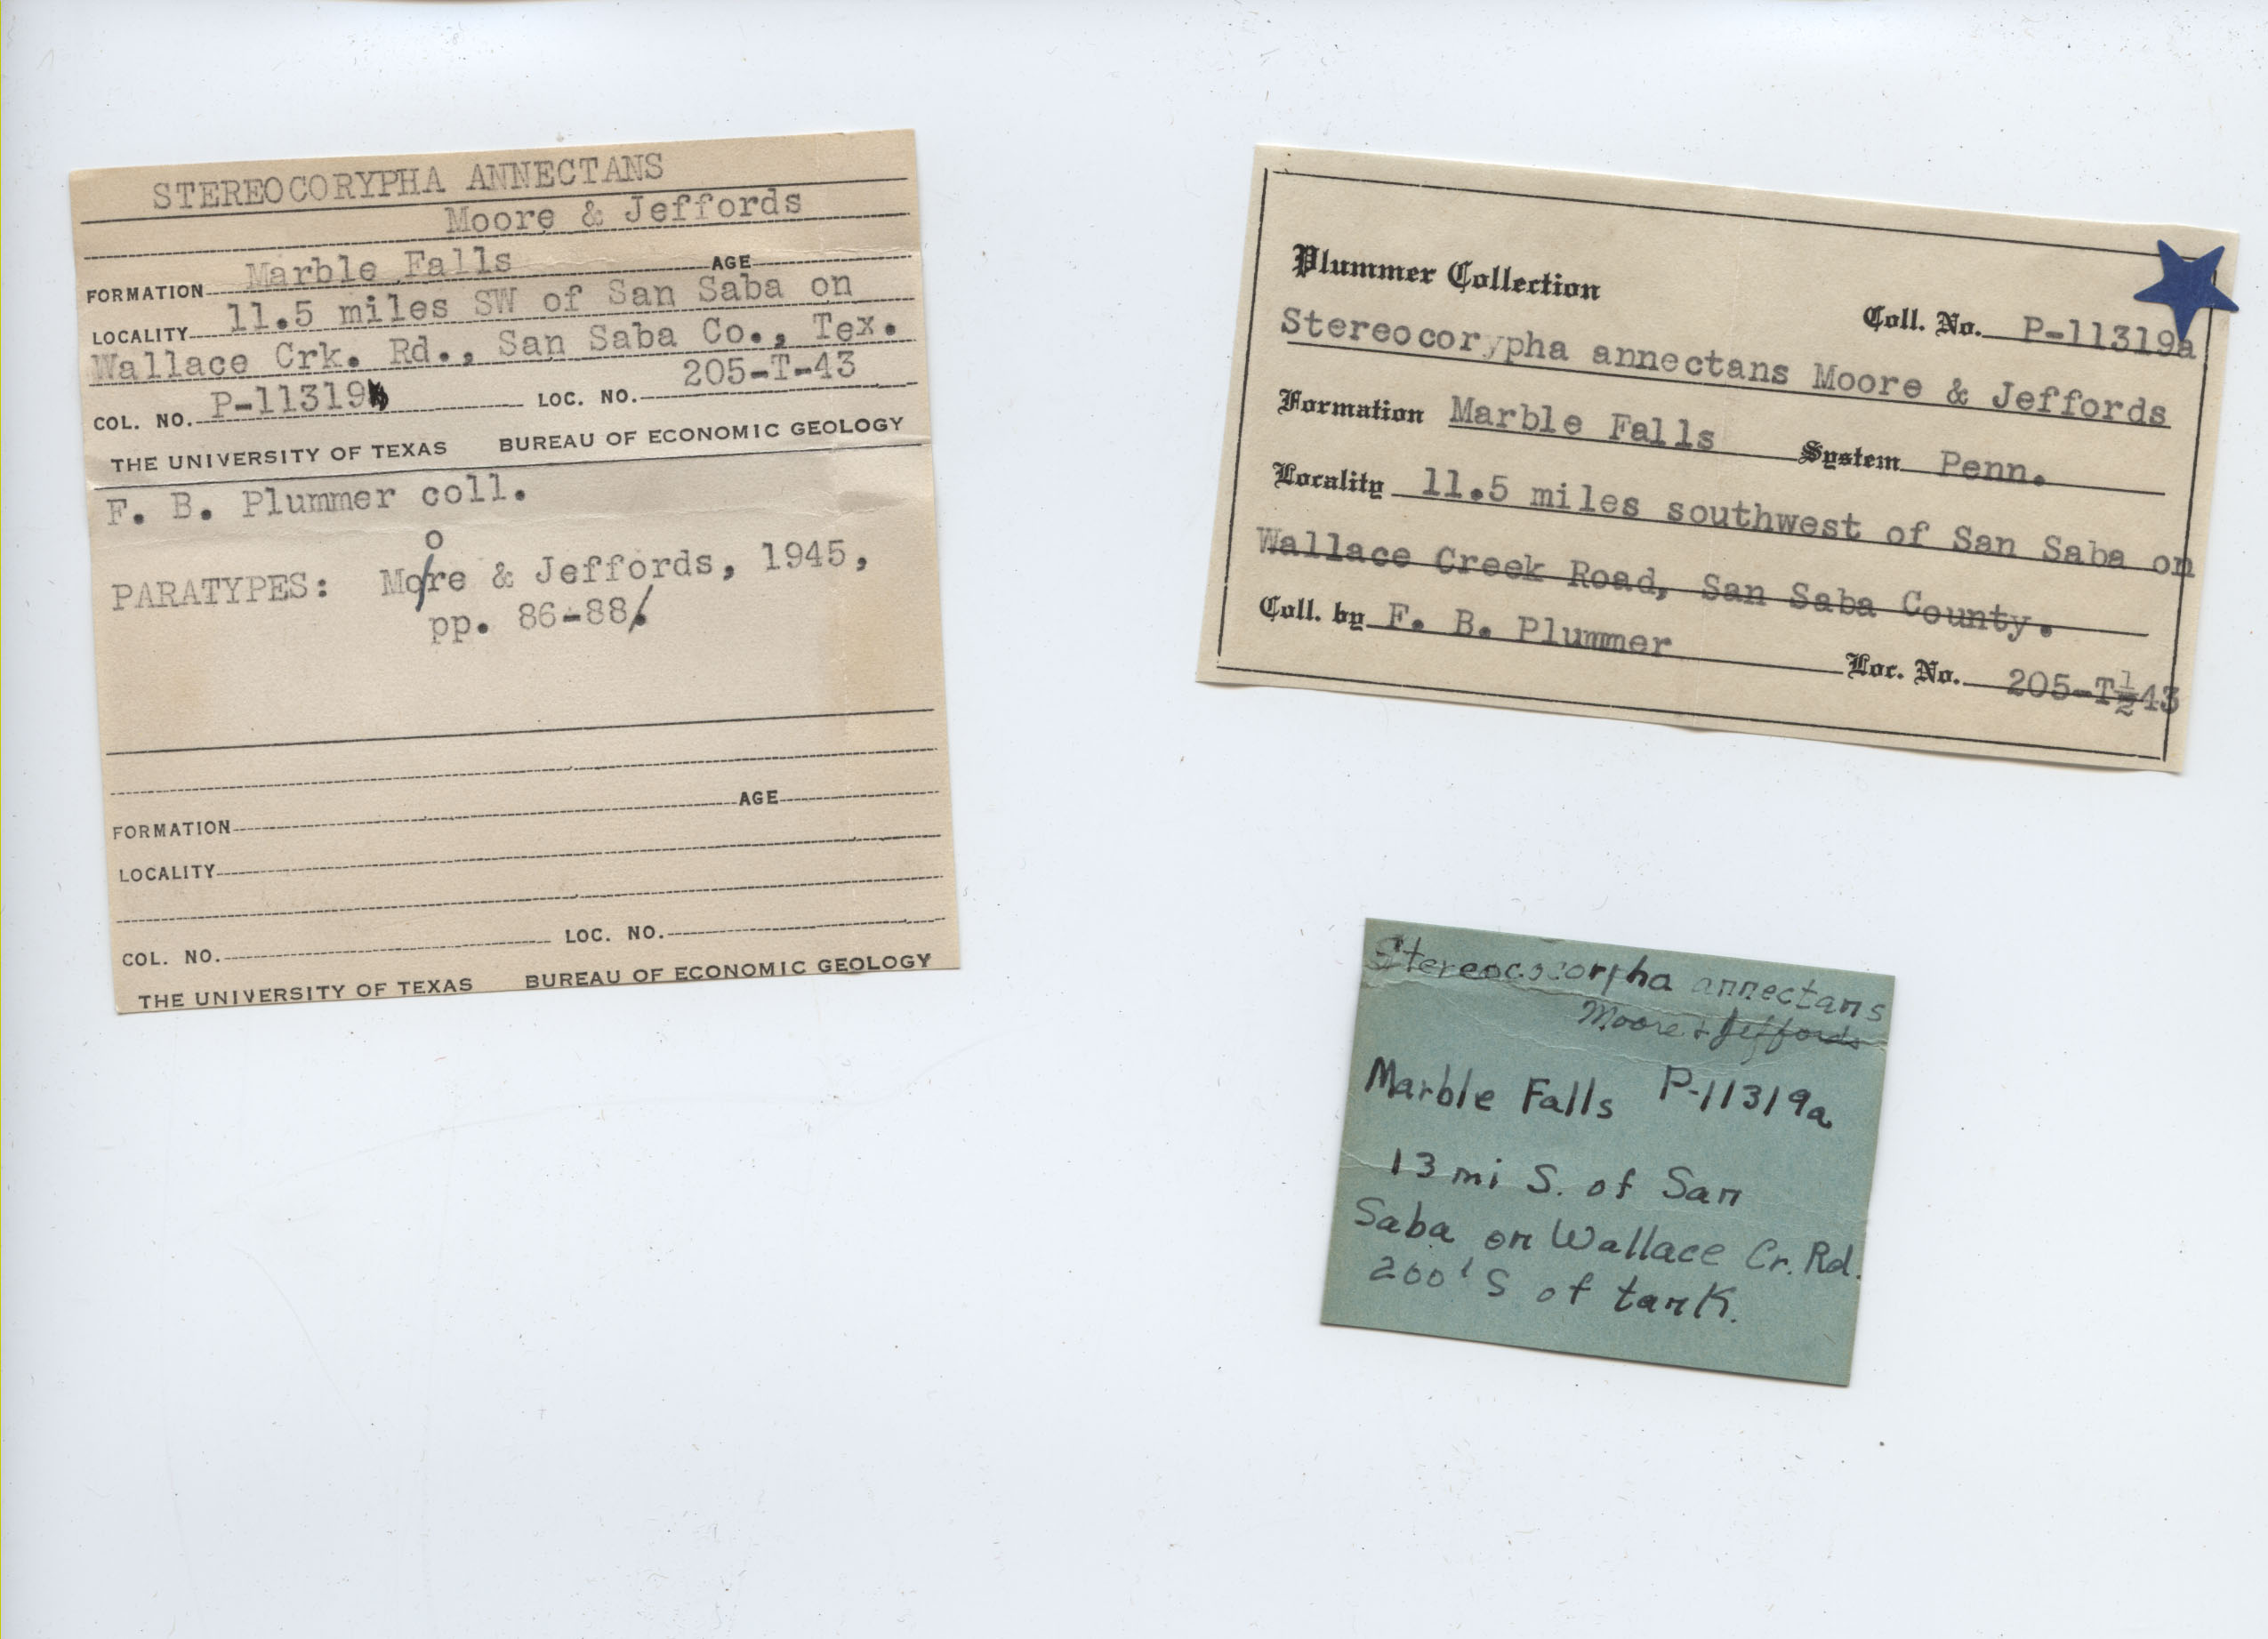 STEREOCORYPHA ANNECTANS
Moore & Jeffords
FORMATION Marble Falls AGE
LOCALITY 11.5 miles SW of San Saba on
Wallace Crk. Rd., San Saba Co., Tex.
COL. NO. P-11319 LOC. NO. 205-T-43
THE UNIVERSITY OF TEXAS BUREAU OF ECONOMIC GEOLOGY
F. B. Plummer coll.
o
PARATYPES: More & Jeffords, 1945,
pp. 86-88.
AGE
FORMATION
LOCALITY
COL. NO. LOC. NO.
THE UNIVERSITY OF TEXAS BUREAU OF ECONOMIC GEOLOGY
Plummer Collection
Coll. No. P-11319a
Stereocorypha annectans Moore & Jeffords
Formation Marble Falls System Penn.
Locality 11.5 miles southwest of San Saba on
Wallace Creek Road, San Saba County.
Coll. by F. B. Plummer
Loc. No. 205-T½43
Stereococorpha annectans
Moore & Jeffords
Marble Falls P-11319a
13 mi S. of San
Saba on Wallace Cr. Rd.
200' S of tank.